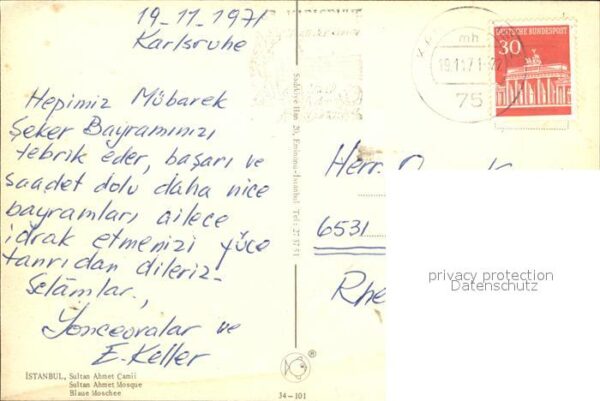 19-11-1971
Karlsruhe
Hepimiz Mübarek
Şeker Bayramınızı
tebrik eder, başarı ve
saadet dolu daha nice
bayramları ailece
idrak etmenizi yüce
tanrıdan dileriz-
Selâmlar.,
Yonceovalar ve
E. Keller
İSTANBUL, Sultan Ahmet Camii
Sultan Ahmet Mosque
Blaue Moschee
34-101
®
Eminönü-İstanbul Tel: 27 37 51
mh
19.11.71-22
75
DEUTSCHE BUNDESPOST
30
Herr
6531
Rhe
privacy protection
Datenschutz